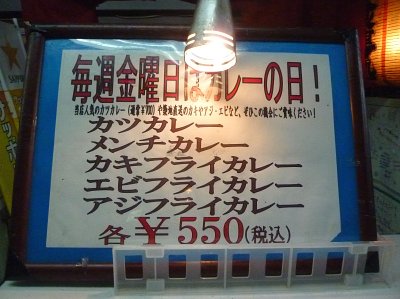 毎週金曜日はカレーの日！
当店人気のカツカレー(通常¥700)や築地直送のカキやアジ・エビなど、ぜひこの機会にご賞味ください！
カツカレー
メンチカレー
カキフライカレー
エビフライカレー
アジフライカレー
各￥550(税込)